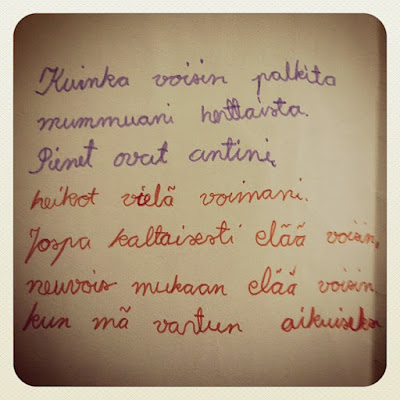 Kuinka voisin palkita
mummuani herttaista.
Pienet ovat antini,
heikot vielä voimani.
Jospa kaltaisesti elää voisin,
neuvois mukaan elää voisin
kun mä vartun aikuiseksi